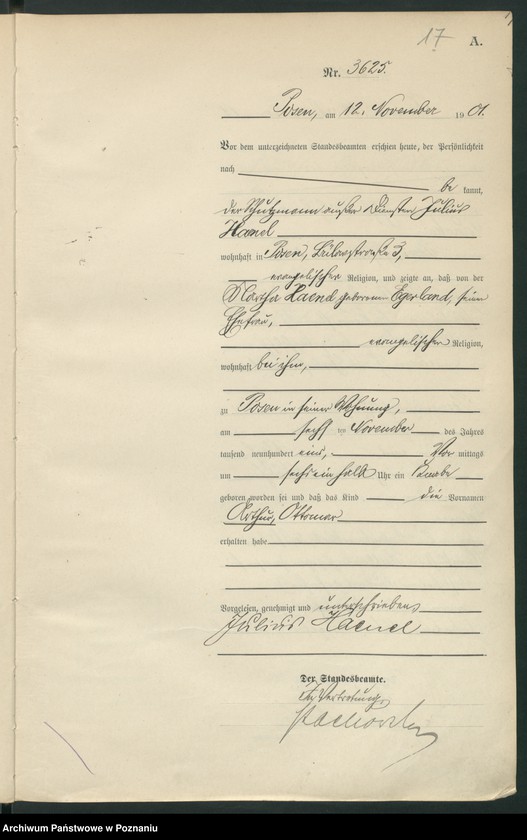 17 A.
Nr. 3625.
Posen, am 12. November 1901.
Vor dem unterzeichneten Standesbeamten erschien heute, der Persönlichkeit
nach
be kannt,
der Schutzmann außer Diensten Julius
Haenel
wohnhaft in Posen, Bülowstraße 3,
evangelischer Religion, und zeigte an, daß von der
Martha Haenel geborenen Egerland, seiner
Ehefrau,
evangelischer Religion,
wohnhaft bei ihm,
zu Posen in seiner Wohnung,
am sechs ten November des Jahres
tausend neunhundert eins, Vor mittags
um sechs ein halb Uhr ein Knabe
geboren worden sei und daß das Kind die Vornamen
Arthur, Ottomar
erhalten habe
Vorgelesen, genehmigt und unterschrieben
Julius Haenel
Der Standesbeamte.
In Vertretung.
Archiwum Państwowe w Poznaniu